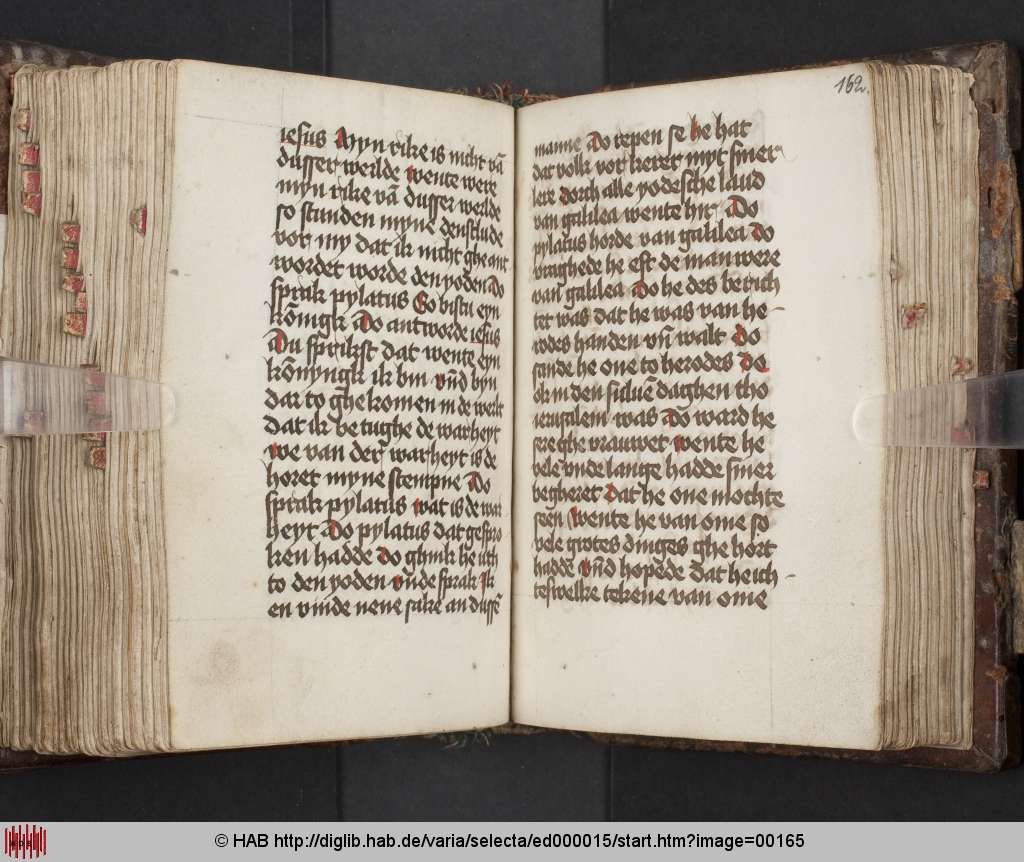 iesus Myn rike is nicht vā
dusser werlde wente were
myn rike vā dusser werlde
so stunden myne denstlude
vor my dat ik nicht ghe ant
wordet worde den yoden Do
sprak pylatus So bistu eyn
kōnigk Do antworde iesus
Du sprikst dat wente eyn
kōnyngk ik bin vnd byn
dar to ghe komen in de werlt
dat ik be tughe de warheyt
we van der warheyt is de
horet myne stempne Do
sprak pylatus wat is de war
heyt Do pylatus dat gespro
ken hadde Do ghink he uth
to den yoden vnde sprak Ik
en vinde nene sake an dussē
162.
manne Do repen se he hat
dat volk vor keret myt siner
lere dorch alle yodesche land
van galilea wente hir Do
pylatus horde van galilea Do
vraghede he eft de man were
van galilea Do he des berich
tet was dat he was van he
rodes handen vn̄ walt Do
sande he one to herodes De
ok in den suluē daghen tho
ierusalem was Do ward he
sere ghe vrauwet wente he
vele vnde lange hadde siner
begheret Dat he one mochte
seen Wente he van ome so
vele grotes dinges ghe hort
hadde vnd hopede dat he ich
teswelke tekene van ome
© HAB http://diglib.hab.de/varia/selecta/ed000015/start.htm?image=00165